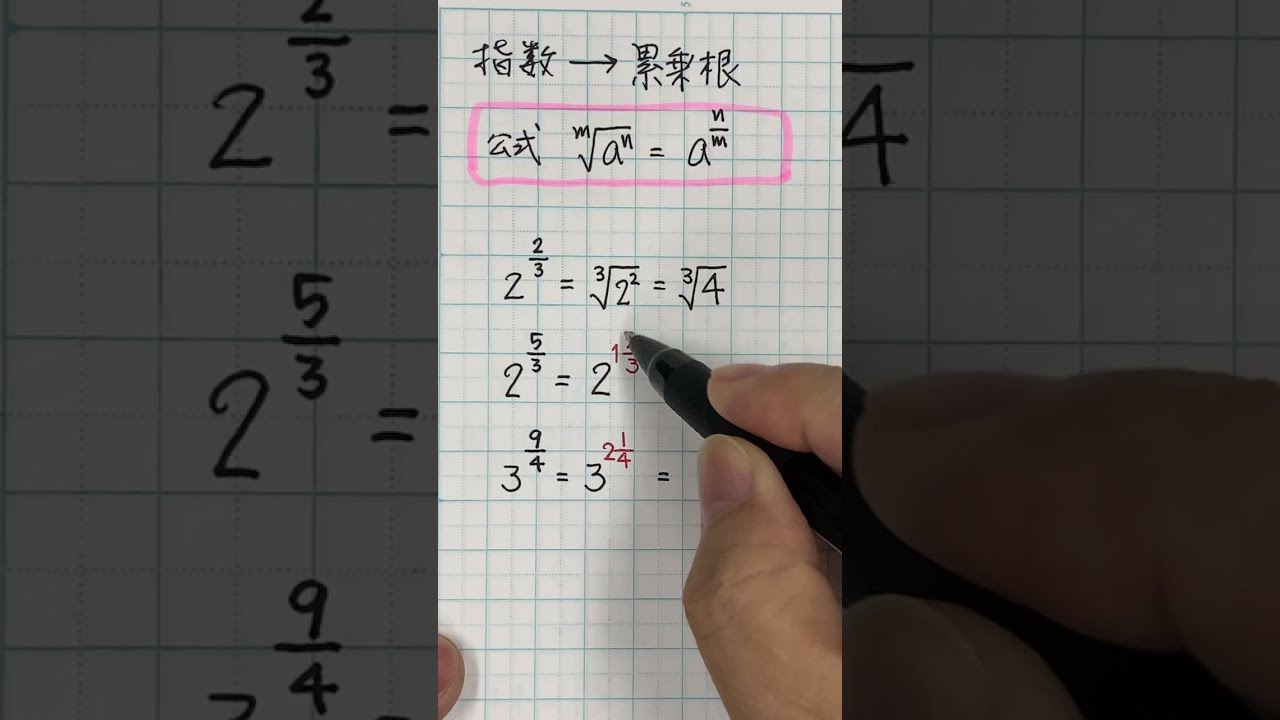 指数 → 累乗根
公式 ᵐ√aⁿ = a^(n/m)
2^(2/3) = ³√2² = ³√4
2^(5/3) = 2^(1 /3)
3^(9/4) = 3^(2 1/4) =